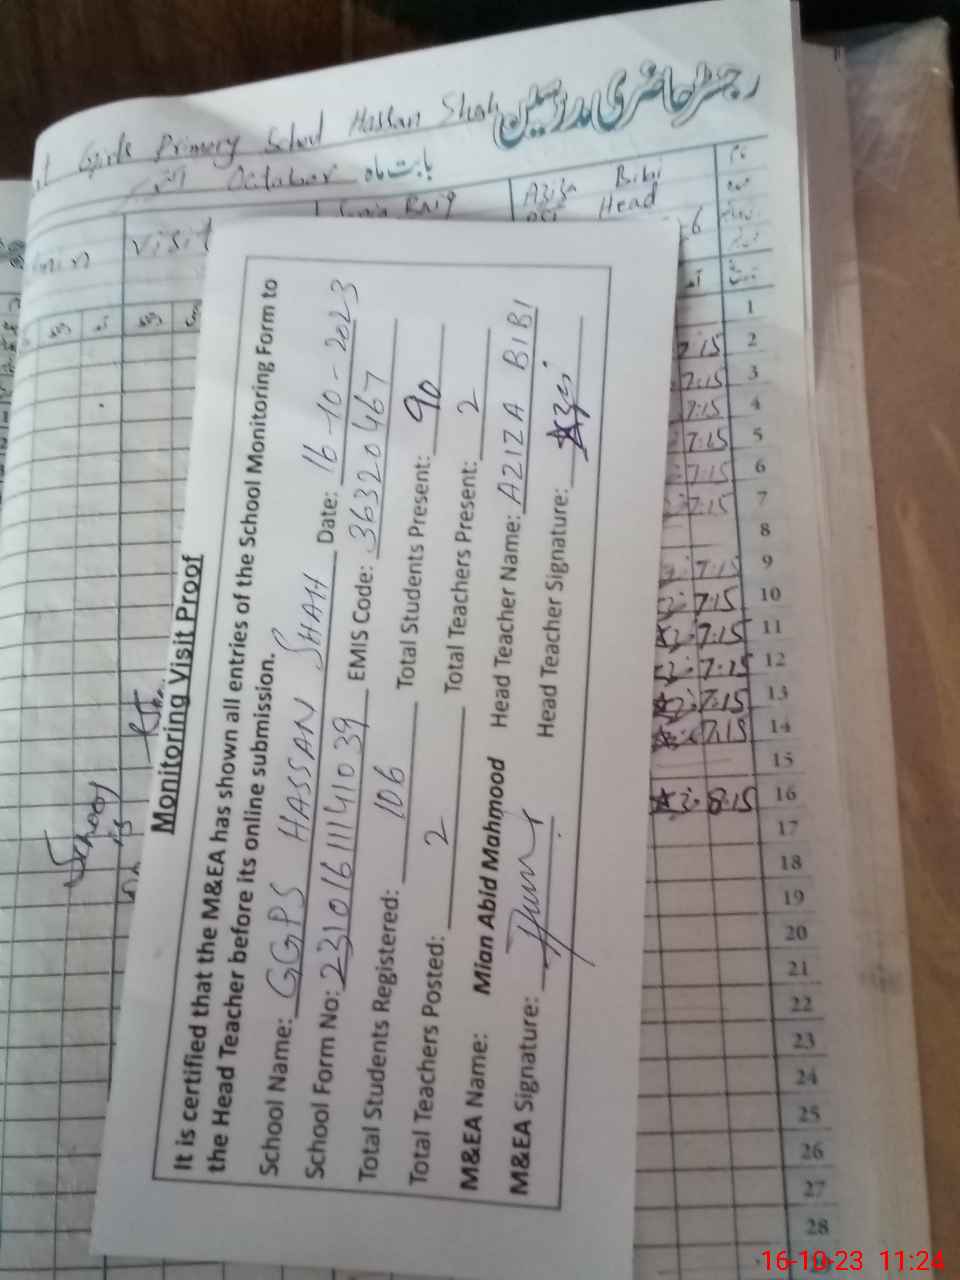 رجسٹر حاضری مدرسین
Girls Primary School Hassan Shah
بابت ماہ October
Aziza Bibi
Head
visit
Monitoring Visit Proof
It is certified that the M&EA has shown all entries of the School Monitoring Form to
the Head Teacher before its online submission.
School Name: GGPS HASSAN SHAH Date: 16-10-2023
School Form No: 231016111141039 EMIS Code: 36320467
Total Students Registered: 106 Total Students Present: 90
Total Teachers Posted: 2 Total Teachers Present: 2
M&EA Name: Mian Abid Mahmood Head Teacher Name: AZIZA BIBI
M&EA Signature: Head Teacher Signature:
1
7:15 2
7:15 3
7:15 4
7:15 5
7:15 6
7:15 7
8
7:15 9
7:15 10
7:15 11
7:15 12
7:15 13
7:15 14
15
8:15 16
17
18
19
20
21
22
23
24
25
26
27
28
School
is
16-10-23 11:24